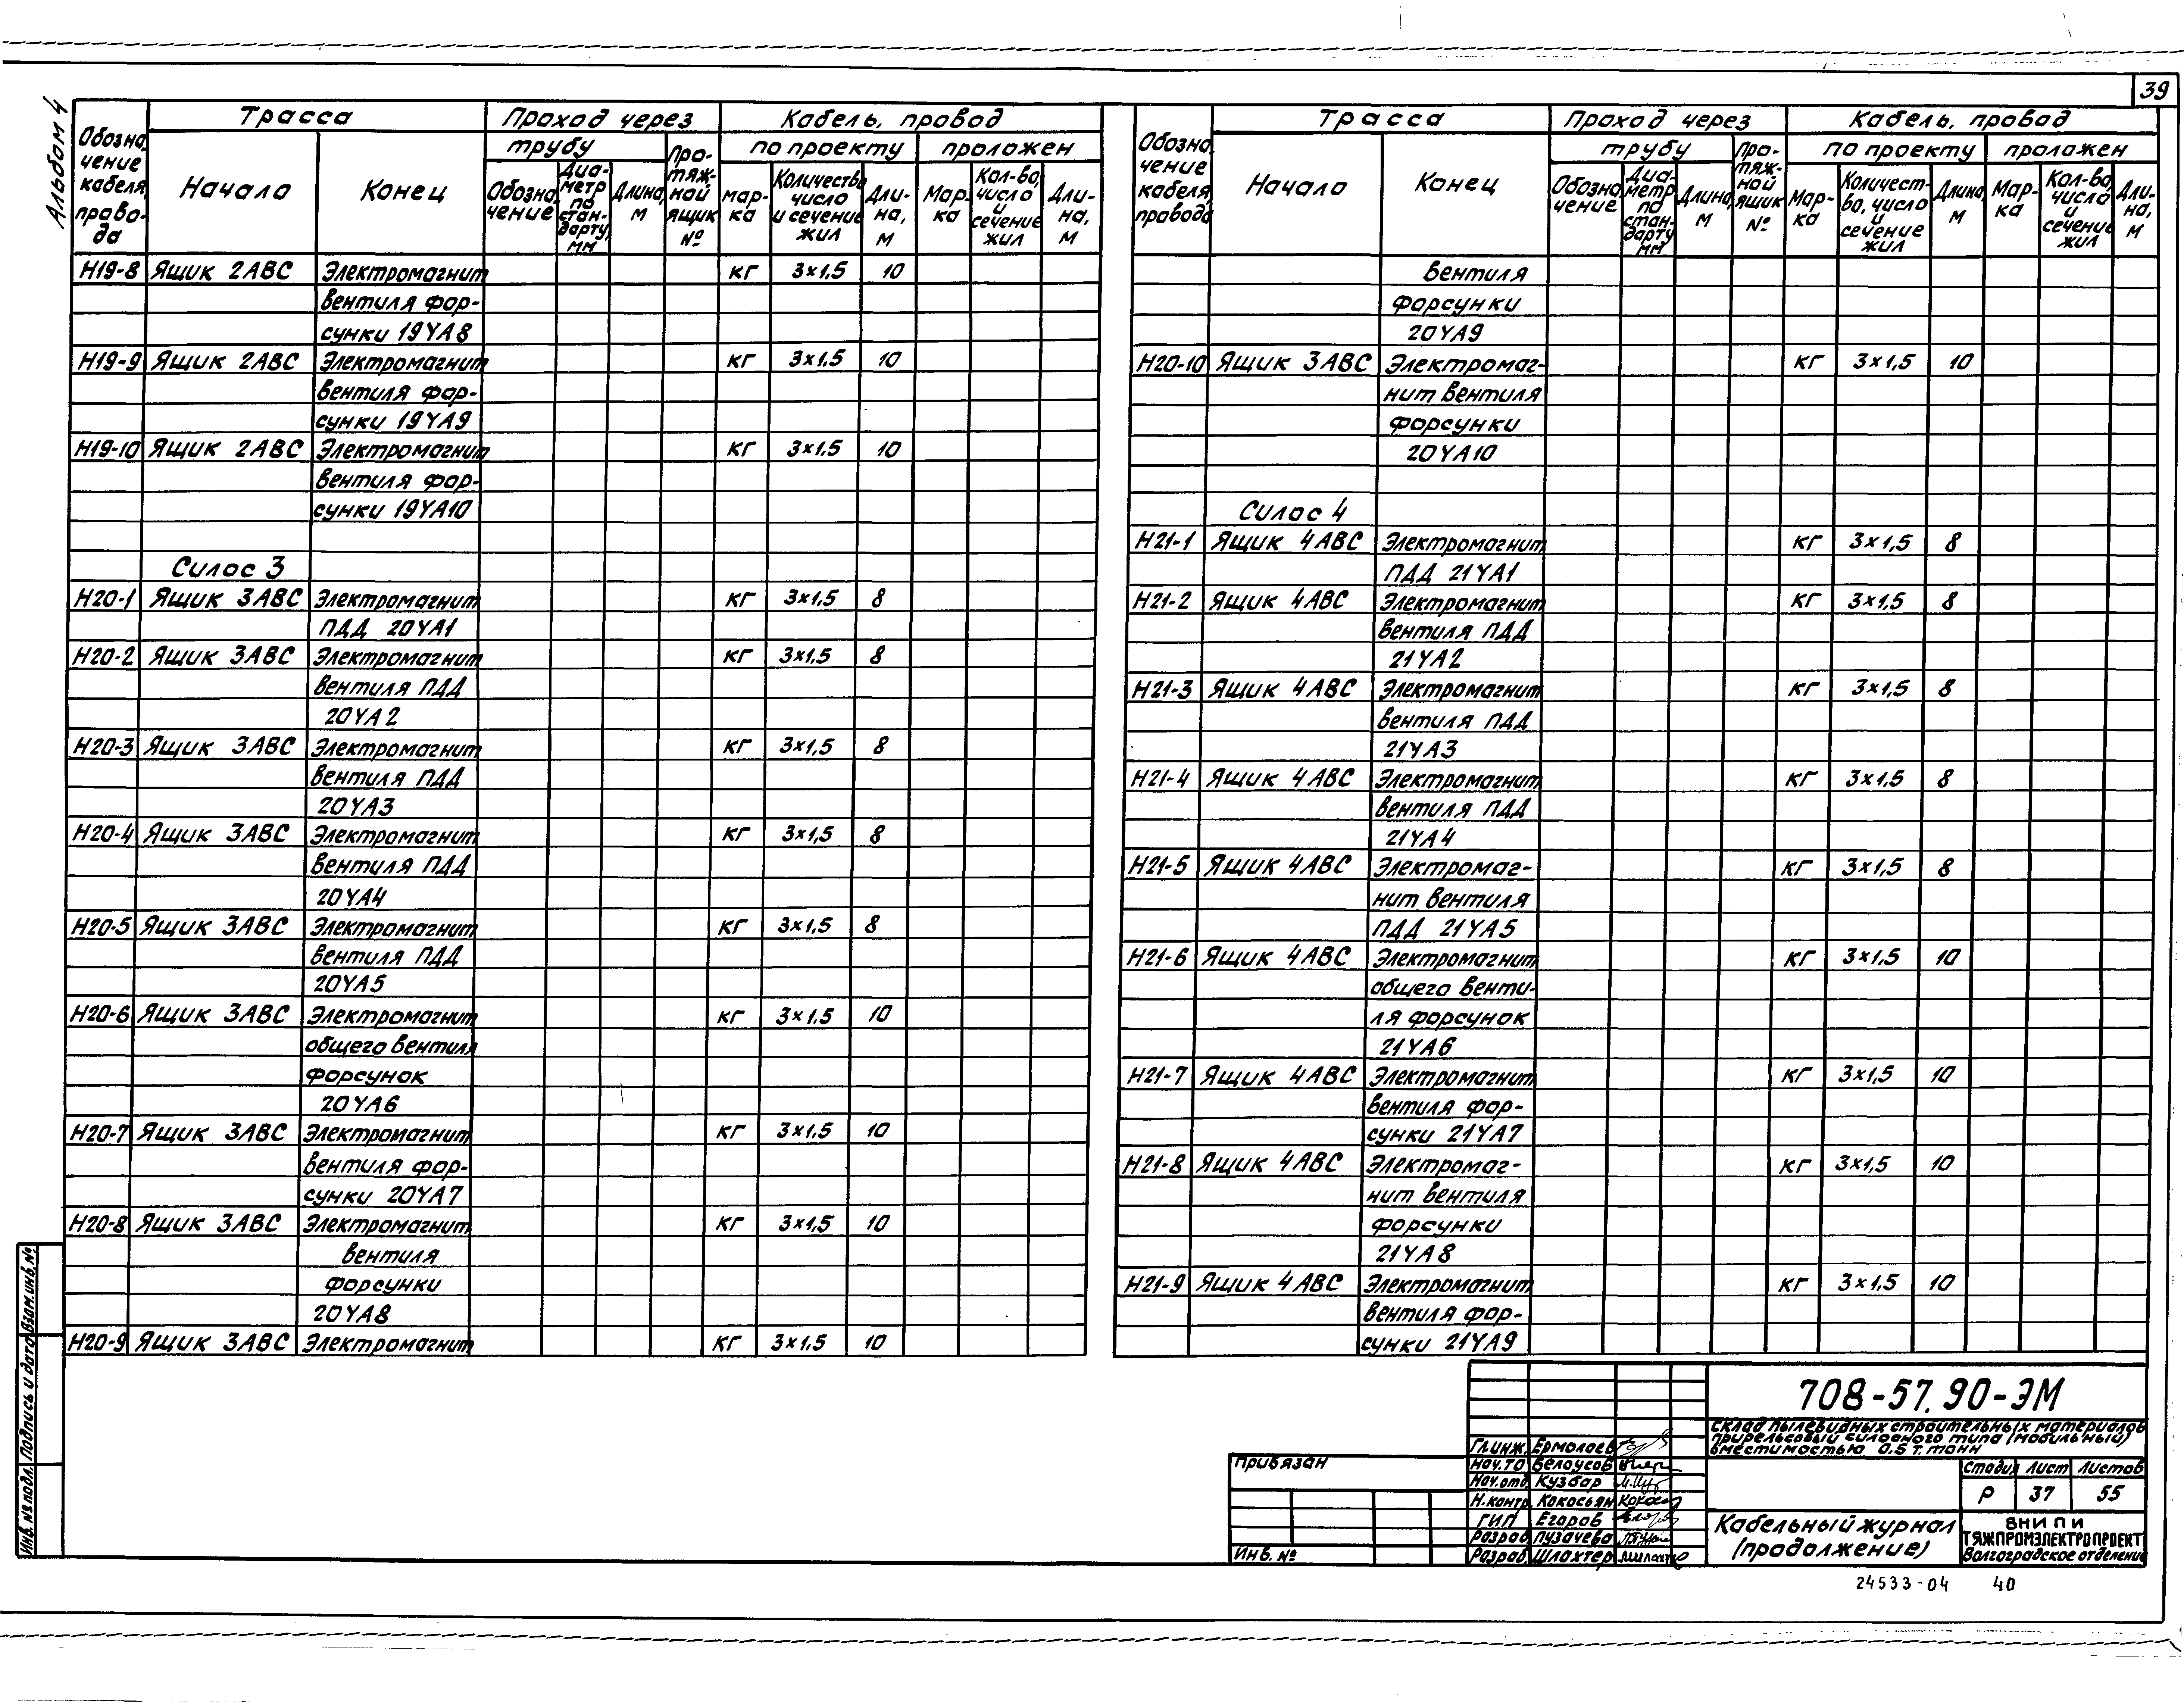 39
Альбом 4
Обозначение кабеля, провода
Трасса
Проход через
Кабель, провод
трубу
Протяжной ящик №
по проекту
проложен
Начало
Конец
Обозначение
Диаметр по стандарту, мм
Длина, м
Марка
Количество число и сечение жил
Длина, м
Марка
Кол-во, число и сечение жил
Длина, м
Н19-8 Ящик 2АВС Электромагнит КГ 3×1,5 10
вентиля фор-
сунки 19YA8
Н19-9 Ящик 2АВС Электромагнит КГ 3×1,5 10
вентиля фор-
сунки 19YA9
Н19-10 Ящик 2АВС Электромагнит КГ 3×1,5 10
вентиля фор-
сунки 19YA10
Силос 3
Н20-1 Ящик 3АВС Электромагнит КГ 3×1,5 8
ПДД 20YA1
Н20-2 Ящик 3АВС Электромагнит КГ 3×1,5 8
вентиля ПДД
20YA2
Н20-3 Ящик 3АВС Электромагнит КГ 3×1,5 8
вентиля ПДД
20YA3
Н20-4 Ящик 3АВС Электромагнит КГ 3×1,5 8
вентиля ПДД
20YA4
Н20-5 Ящик 3АВС Электромагнит КГ 3×1,5 8
вентиля ПДД
20YA5
Н20-6 Ящик 3АВС Электромагнит КГ 3×1,5 10
общего вентиля
форсунок
20YA6
Н20-7 Ящик 3АВС Электромагнит КГ 3×1,5 10
вентиля фор-
сунки 20YA7
Н20-8 Ящик 3АВС Электромагнит КГ 3×1,5 10
вентиля
форсунки
20YA8
Н20-9 Ящик 3АВС Электромагнит КГ 3×1,5 10
Обозначение кабеля, провода
Трасса
Проход через
Кабель, провод
трубу
Протяжной ящик №
по проекту
проложен
Начало
Конец
Обозначение
Диаметр по стандарту мм
Длина, м
Марка
Количество, число и сечение жил
Длина, м
Марка
Кол-во, число и сечение жил
Длина, м
вентиля
форсунки
20YA9
Н20-10 Ящик 3АВС Электромаг- КГ 3×1,5 10
нит вентиля
форсунки
20YA10
Силос 4
Н21-1 Ящик 4АВС Электромагнит КГ 3×1,5 8
ПДД 21YA1
Н21-2 Ящик 4АВС Электромагнит КГ 3×1,5 8
вентиля ПДД
21YA2
Н21-3 Ящик 4АВС Электромагнит КГ 3×1,5 8
вентиля ПДД
21YA3
Н21-4 Ящик 4АВС Электромагнит КГ 3×1,5 8
вентиля ПДД
21YA4
Н21-5 Ящик 4АВС Электромаг- КГ 3×1,5 8
нит вентиля
ПДД 21YA5
Н21-6 Ящик 4АВС Электромагнит КГ 3×1,5 10
общего венти-
ля форсунок
21YA6
Н21-7 Ящик 4АВС Электромагнит КГ 3×1,5 10
вентиля фор-
сунки 21YA7
Н21-8 Ящик 4АВС Электромаг- КГ 3×1,5 10
нит вентиля
форсунки
21YA8
Н21-9 Ящик 4АВС Электромагнит КГ 3×1,5 10
вентиля фор-
сунки 21YA9
Инв. № подл. Подпись и дата Взам. инв. №
Привязан
Инв. №
708-57.90-ЭМ
Склад пылевидных строительных материалов
прирельсовый силосного типа (мобильный)
вместимостью 0,5 т. тонн
Гл.инж. Ермолаев
Нач.ТО Белоусов
Нач.отд. Кузбар
Н.контр. Кокосьян
ГИП Егоров
Разраб. Пузачева
Разраб. Шлахтер
Стадия Лист Листов
Р 37 55
Кабельный журнал
(продолжение)
ВНИПИ
ТЯЖПРОМЭЛЕКТРОПРОЕКТ
Волгоградское отделение
24533-04 40